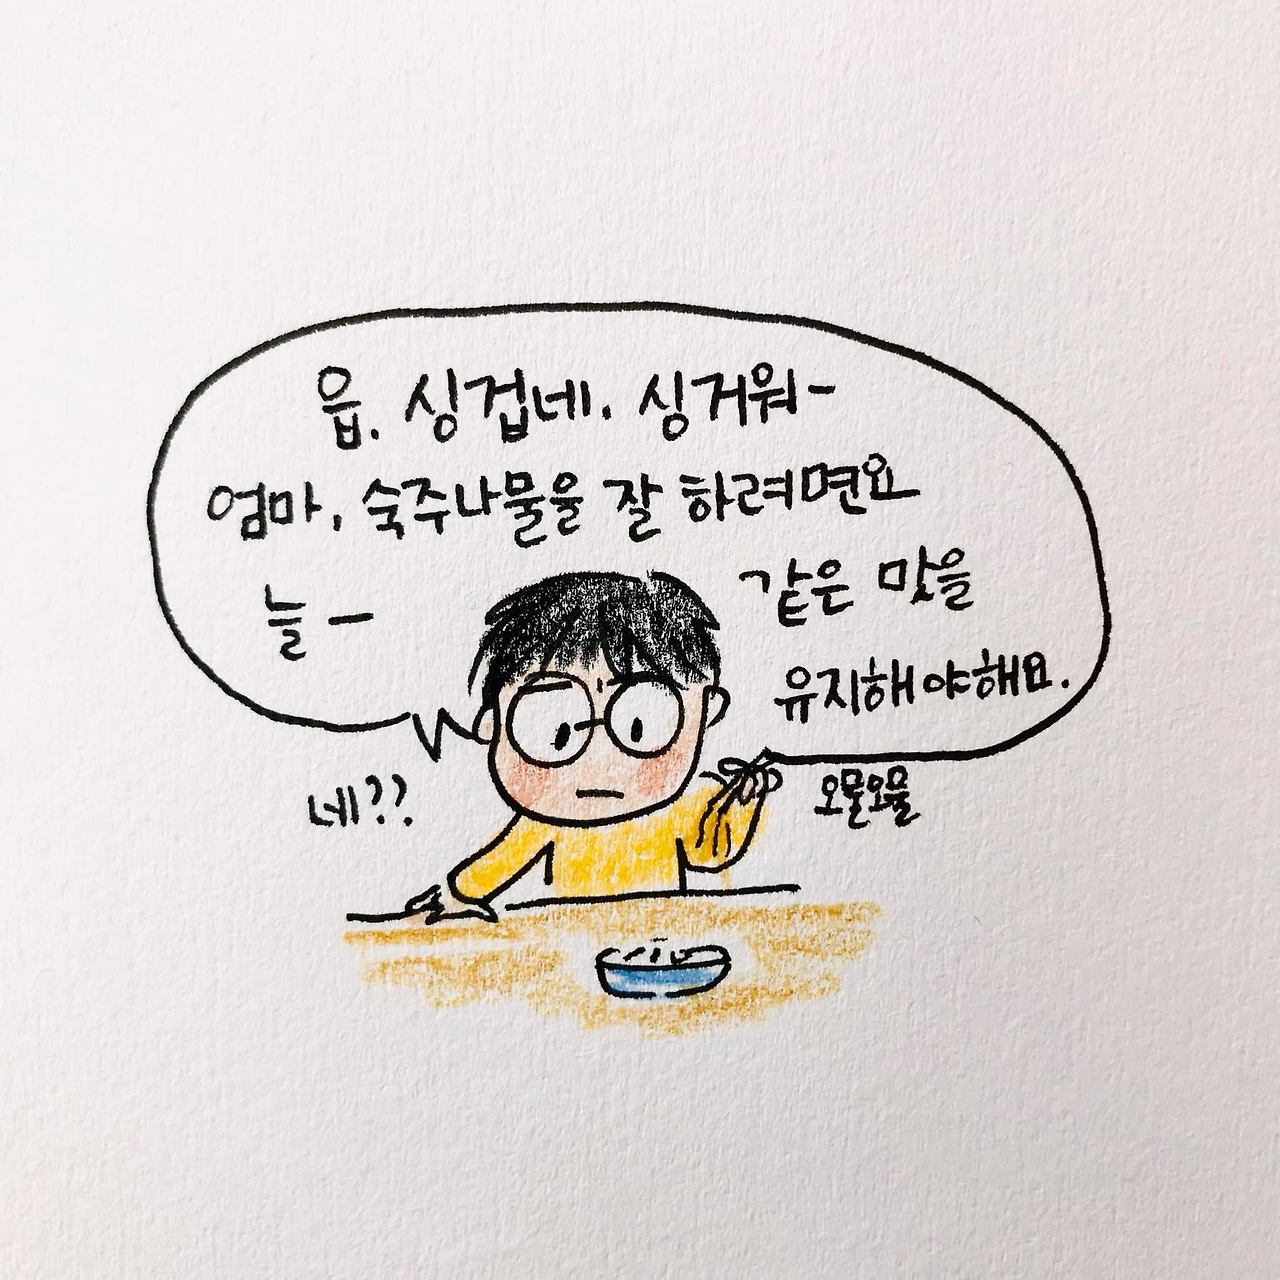 읍. 싱겁네. 싱거워-
엄마, 숙주나물을 잘 하려면요
늘- 같은 맛을
유지해야해요.
네??
오물오물